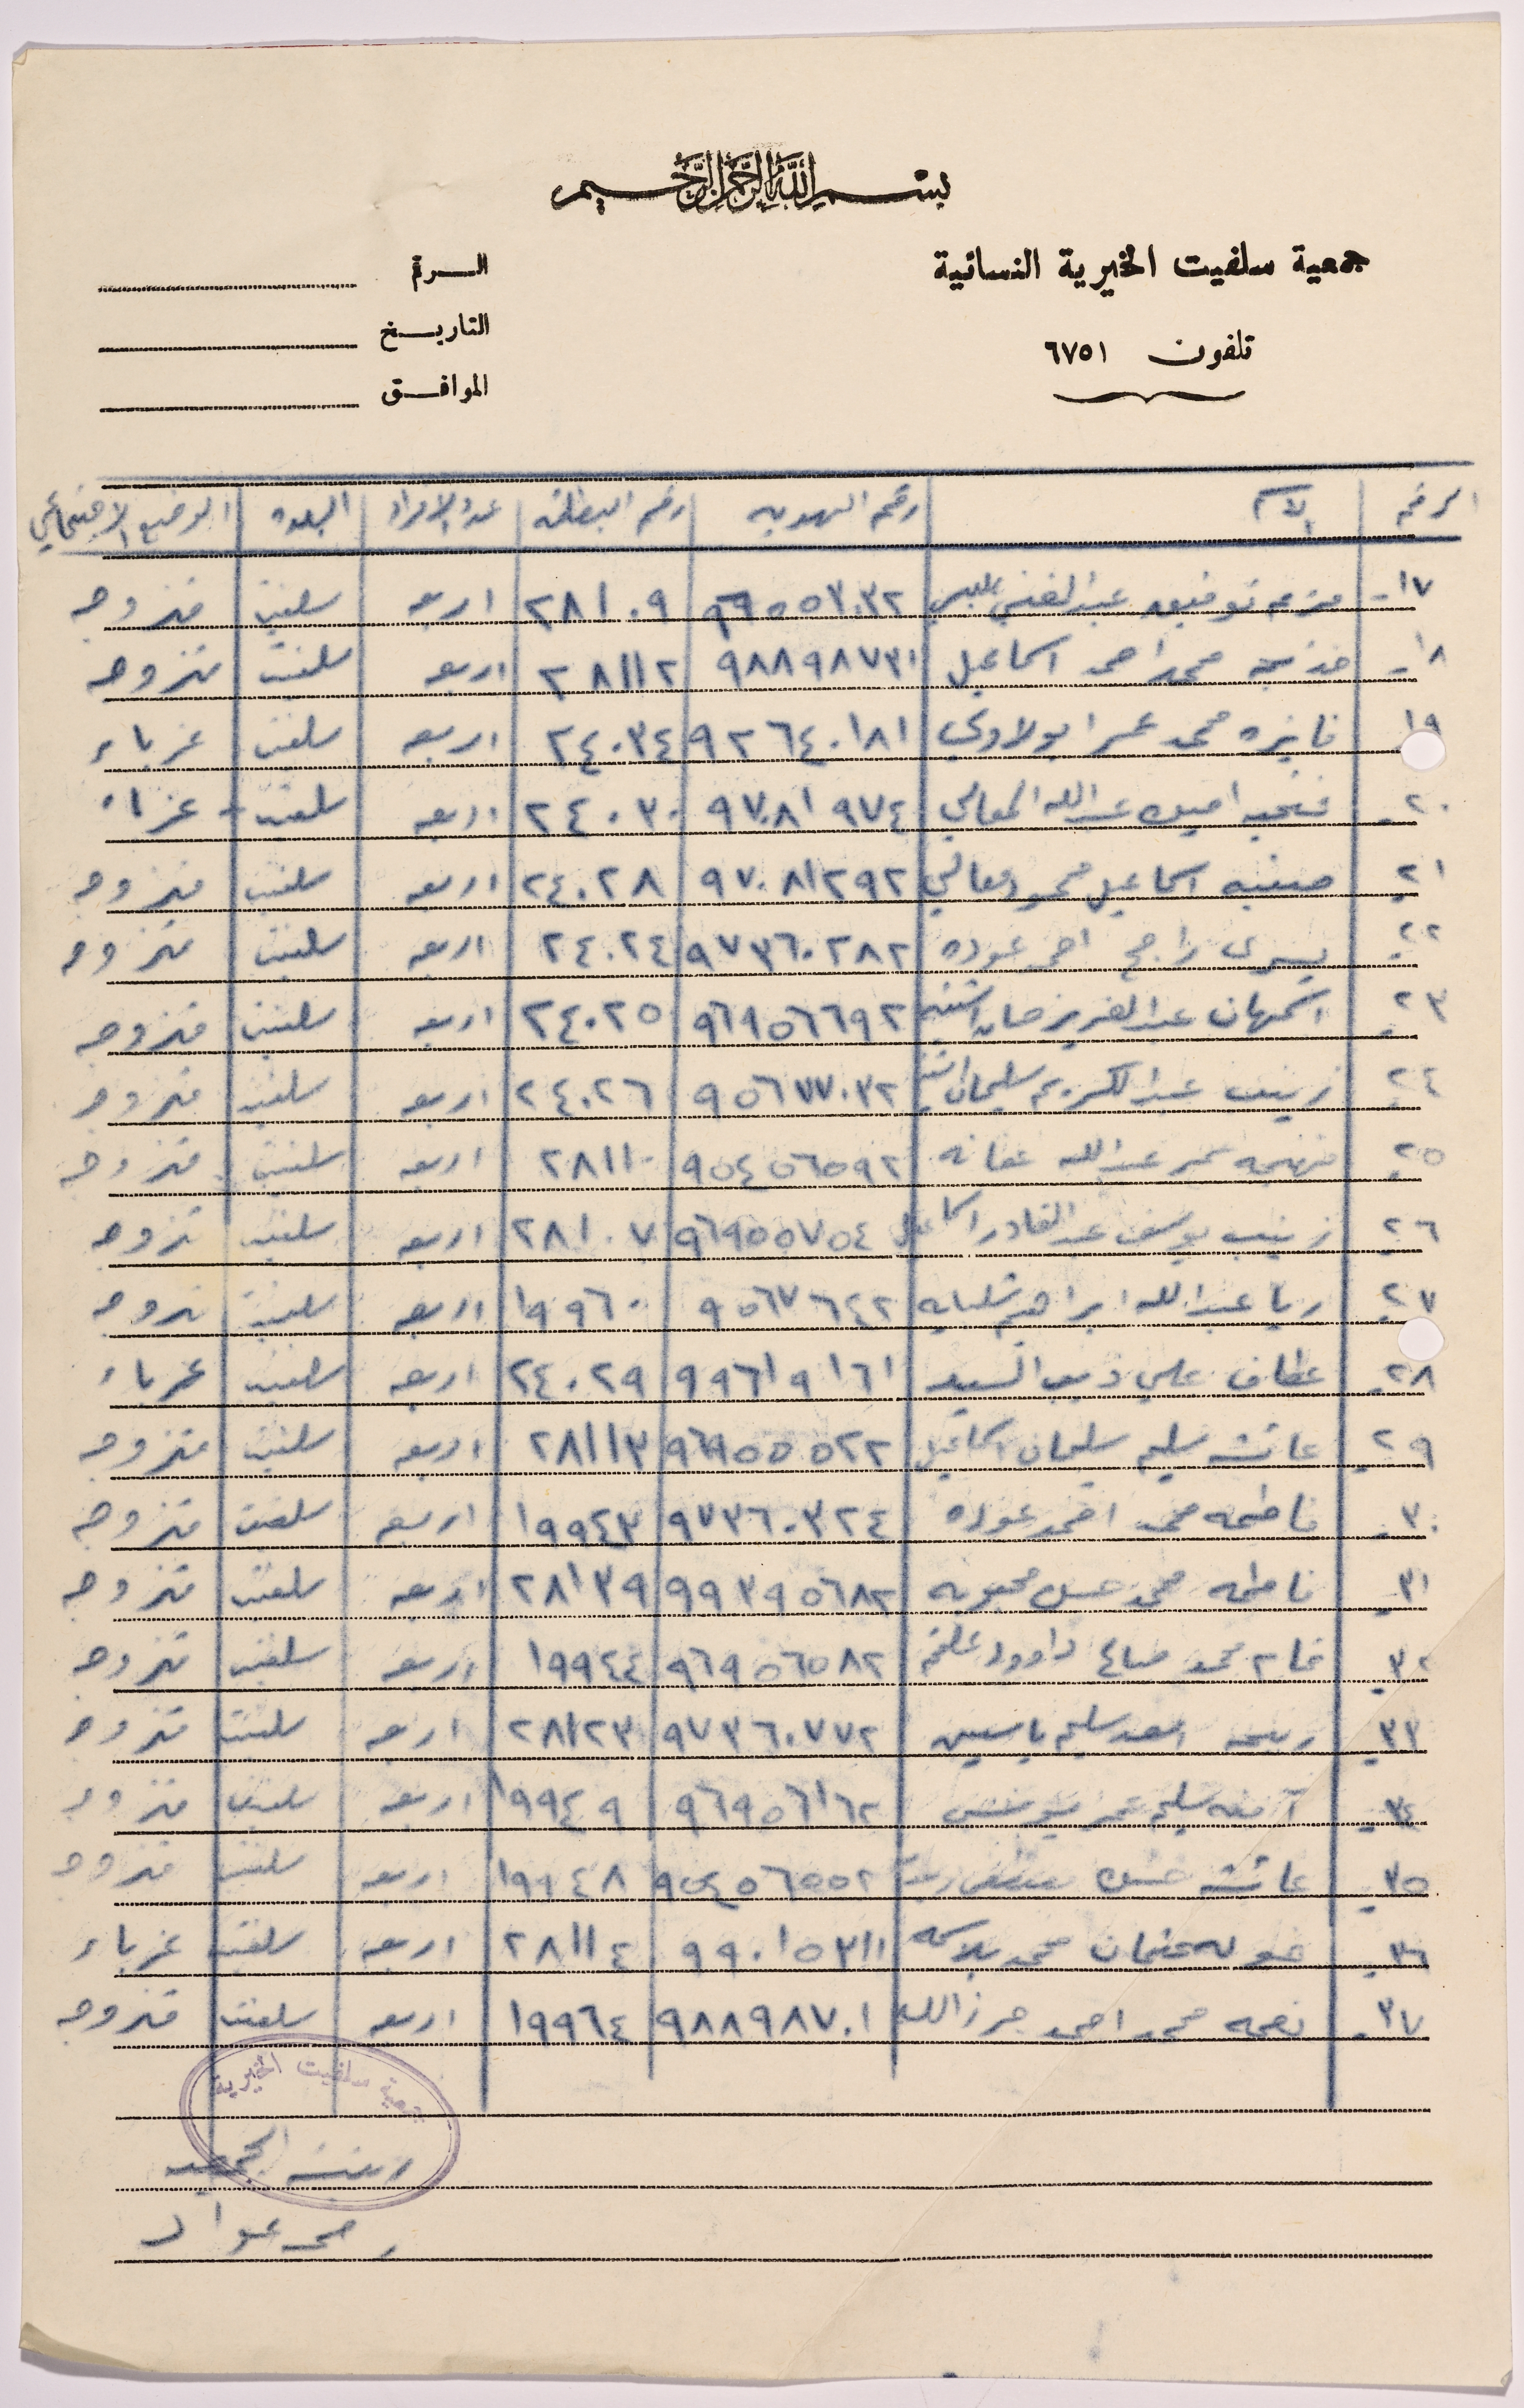 بسم الله الرحمن الرحيم
جمعية سلفيت الخيرية النسائية
الرقم
تلفون ٦٧٥١
التاريخ
الموافق
الرقم الاسم رقم الهوية رقم البطاقة عدد الافراد البلده الوضع الاجتماعي
١٧- توفيق عبد الغني ٢٨١٠٩ اربعه سلفيت متزوجه
١٨- خديجة محمد احمد اسماعيل ٩٨٨٩٨٧٣١ ٢٨١١٢ اربعه سلفيت متزوجه
١٩ فايزه محمد عمر ابو لاوي ٩٢٦٤٠١٨١ ٢٤٠٣٤ اربعه سلفيت عزباء
٢٠- فتحيه امين عبدالله المعالي ٩٧٠٨١٩٧٤ ٢٤٠٣٠ اربعه سلفيت عزباء
٢١- صفيه اسماعيل محمود معالي ٩٧٠٨١٢٩٢ ٢٤٠٢٨ اربعه سلفيت متزوجه
٢٢- يسرى راجح احمد عوده ٩٧٣٦٠٢٨٢ ٢٤٠٢٤ اربعه سلفيت متزوجه
٢٣- اسمهان عبد العزيز حسان اشتيه ٩٦٩٥٦٦٩٢ ٢٤٠٢٥ اربعه سلفيت متزوجه
٢٤- زينب عبد الكريم سليمان اشتيه ٩٥٦٧٧٠٣٢ ٢٤٠٢٦ اربعه سلفيت متزوجه
٢٥- فهيمه عمر عبدالله عفانه ٩٥٤٥٦٥٩٢ ٢٨١١٠ اربعه سلفيت متزوجه
٢٦- زينب يوسف عبد القادر اسماعيل ٩٦٩٥٥٧٥٤ ٢٨١٠٧ اربعه سلفيت متزوجه
٢٧- ريا عبدالله ابراهيم ٩٥٦٧٦٤٢ ١٩٩٦٠ اربعه سلفيت متزوجه
٢٨- عطاف علي ذيب السيد ٩٩٦١٩١٦١ ٢٤٠٢٩ اربعه سلفيت عزباء
٢٩- عائشه سليم سليمان اسماعيل ٩٦٩٥٥٥٢٢ ٢٨١١٣ اربعه سلفيت متزوجه
٣٠- فاطمه محمد احمد عوده ٩٧٣٦٠٣٢٤ ١٩٩٤٣ اربعه سلفيت متزوجه
٣١- فاطمه محمد حسن محبوبه ٩٩٣٩٥٦٨٢ ٢٨١٣٩ اربعه سلفيت متزوجه
٣٢- محمد صالح داوود ٩٦٩٥٦٥٨٢ ١٩٩٤٤ اربعه سلفيت متزوجه
٣٣- ربيحه اسعد سليم ياسين ٩٧٣٦٠٧٧٢ ٢٨١٢٣ اربعه سلفيت متزوجه
٣٤- آمنه سليم عمر يونس ٩٦٩٥٦١٦٢ ١٩٩٤٩ اربعه سلفيت متزوجه
٣٥- عائشه حسن ٩٥٤٥٦٥٥٢ ١٩٩٤٨ اربعه سلفيت متزوجه
٣٦- خوله عثمان محمد بلاسمه ٩٩٠١٥٣١١ ٢٨١١٤ اربعه سلفيت عزباء
٣٧- نعمه محمد احمد حرزالله ٩٨٨٩٨٧٠١ ١٩٩٦٤ اربعه سلفيت متزوجه
جمعية سلفيت الخيرية
رئيسة الجمعيه
عواد